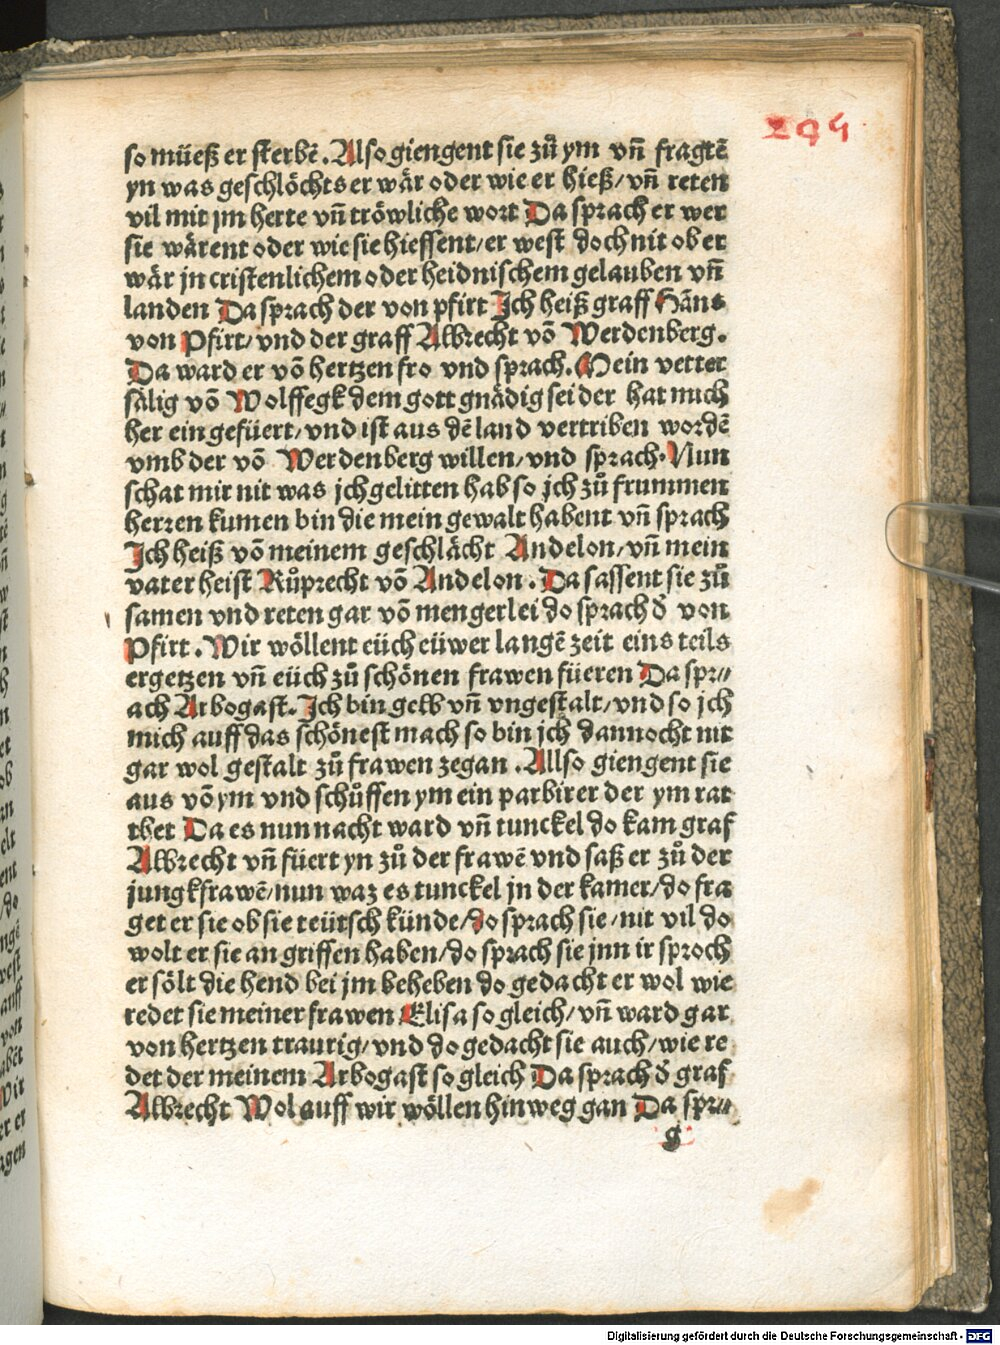 294
so müeß er sterbē. Also giengent sie zů ym vn̄ fragtē
yn was geschlöchts er wär oder wie er hieß/ vn̄ reten
vil mit jm herte vn̄ tröwliche wort Da sprach er wer
sie wärent oder wie sie hieſſent/ er west doch nit ob er
wär jn cristenlichem oder heidnischem gelauben vn̄
landen Da sprach der von pfirt Ich heiß graff Hāns
von Pfirt/ vnd der graff Albrecht vō Werdenberg.
Da ward er vō hertzen fro vnd sprach. Mein vetter
sälig vō Wolffegk dem gott gnädig sei der hat mich
her ein gefüert/ vnd ist aus dē land vertriben wordē
vmb der vō Werdenberg willen/ vnd sprach. Nun
schat mir nit was jch gelitten hab so jch zů frummen
herren kumen bin die mein gewalt habent vn̄ sprach
Ich heiß vō meinem geschlächt Andelon/ vn̄ mein
vater heist Růprecht vō Andelon. Da sassent sie zů
samen vnd reten gar vō mengerlei do sprach d̄ von
Pfirt. Wir wöllent eüch eüwer langē zeit eins teils
ergetzen vn̄ eüch zů schönen frawen füeren Da spr//
ach Arbogast. Ich bin gelb vn̄ vngestalt/ vnd so jch
mich auff das schönest mach so bin jch dannocht nit
gar wol gestalt zů frawen zegan. Allso giengent sie
aus vō ym vnd schůffen ym ein parbirer der ym rat
tbet Da es nun nacht ward vn̄ tunckel do kam graf
Albrecht vn̄ füert yn zů der frawē vnd saß er zů der
jungkfrawē/ nun waz es tunckel jn der kamer/ do fra
get er sie ob sie teütsch künde/ do sprach sie/ nit vil do
wolt er sie an griffen haben/ do sprach sie jnn ir sproch
er sölt die hend bei jm beheben do gedacht er wol wie
redet sie meiner frawen Elisa so gleich/ vn̄ ward gar
von hertzen traurig/ vnd do gedacht sie auch/ wie re
det der meinem Arbogast so gleich Da sprach d̄ graf
Albrecht Wol auff wir wöllen hinweg gan Da spr//
g
Digitalisierung gefördert durch die Deutsche Forschungsgemeinschaft - DFG